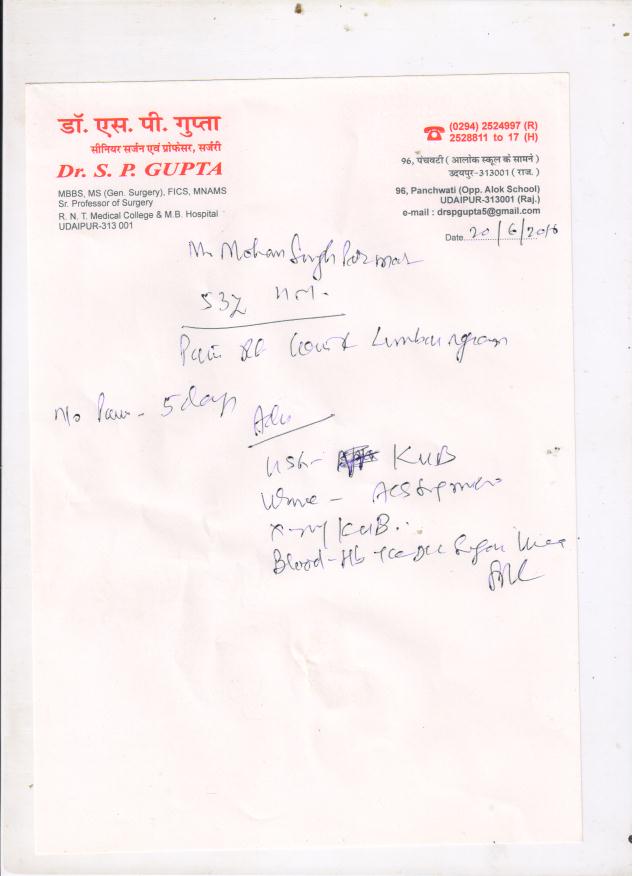 डॉ. एस. पी. गुप्ता
सीनियर सर्जन एवं प्रोफेसर, सर्जरी
Dr. S. P. GUPTA
MBBS, MS (Gen. Surgery), FICS, MNAMS
Sr. Professor of Surgery
R. N. T. Medical College & M.B. Hospital
UDAIPUR-313 001
(0294) 2524997 (R)
2528811 to 17 (H)
96, पंचवटी ( आलोक स्कूल के सामने )
उदयपुर-313001 ( राज. )
96, Panchwati (Opp. Alok School)
UDAIPUR-313001 (Raj.)
e-mail : drspgupta5@gmail.com
Date 20/6/2016
Mr Mohan Singh Parmar
53y
Pain Lumbar region
H/o Pain - 5 days
Adv
USG - KUB
Urine -
X-ray KUB.
Blood - Hb TLC DLC Sugar Urea